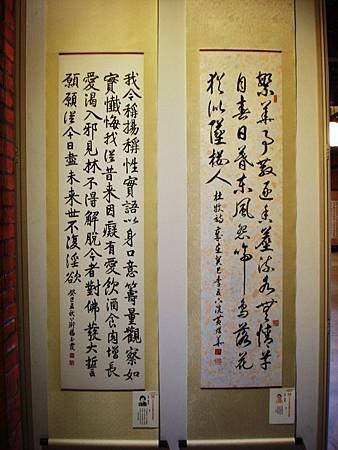 繁華事散逐香塵流水無情草
自春日暮東風怨啼鳥落花
猶似墜樓人 杜牧詩 歲在癸巳
我今稱揚稱性實語以身口意籌量觀察如
實懺悔我從昔來因癡有愛飲酒食肉增長
愛渴入邪見林不得解脫今者對佛發大誓
願願從今日盡未來世不復淫欲 癸巳